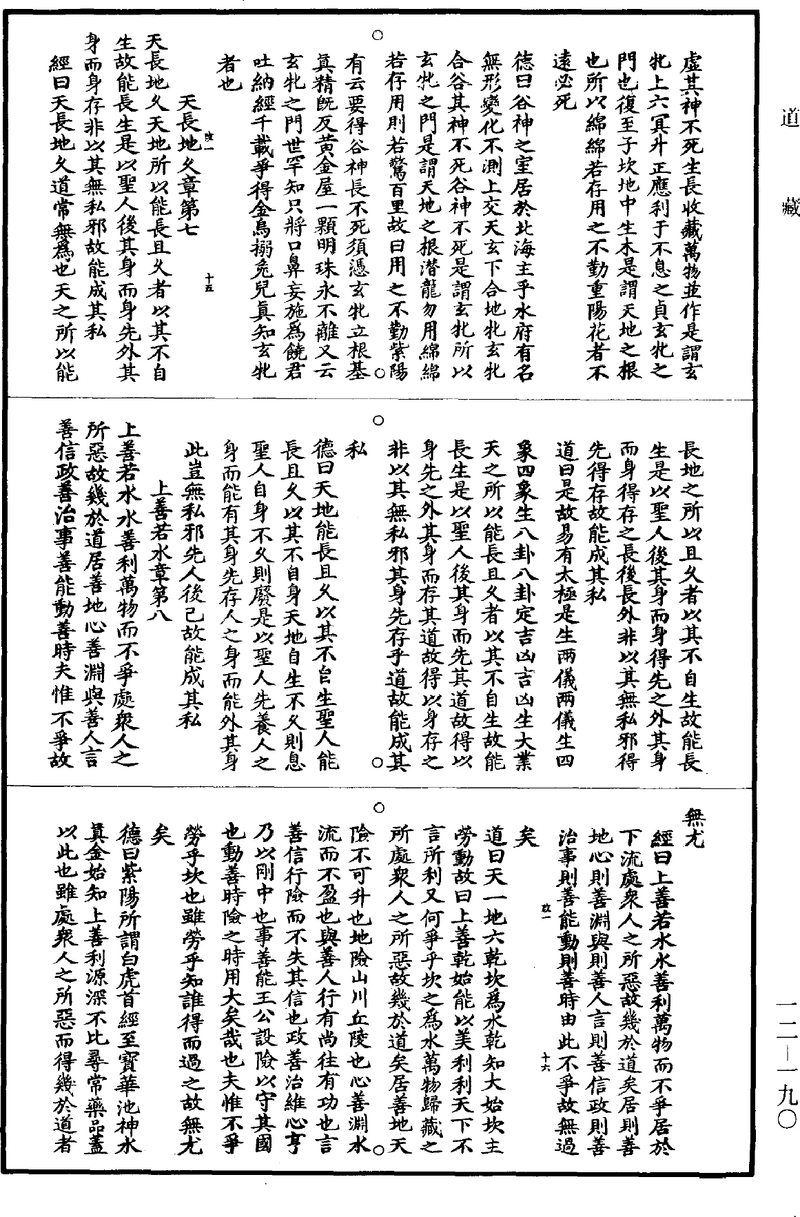 道藏
虛其神不死生長收藏萬物並作是謂玄
牝上六冥升正應利于不息之貞玄牝之
門也復至子坎地中生木是謂天地之根
也所以綿綿若存用之不勤重陽花者不
遠必死
德曰谷神之室居於北海主乎水府有名
無形變化不測上交天玄下合地牝玄牝
合谷其神不死谷神不死是謂玄牝所以
玄牝之門是謂天地之根潛龍勿用綿綿
若存用則若驚百里故曰用之不勤紫陽
有云要得谷神長不死須憑玄牝立根基
真精既反黃金屋一顆明珠永不離又云
玄牝之門世罕知只將口鼻妄施為饒君
吐納經千載爭得金烏搦兔兒真知玄牝
者也
天長地久章第七
改一
十五
天長地久天地所以能長且久者以其不自
生故能長生是以聖人後其身而身先外其
身而身存非以其無私邪故能成其私
經曰天長地久道常無為也天之所以能
長地之所以且久者以其不自生故能長
生是以聖人後其身而身得先之外其身
而身得存之長後長外非以其無私邪得
先得存故能成其私
道曰是故易有太極是生兩儀兩儀生四
象四象生八卦八卦定吉凶吉凶生大業
天之所以能長且久者以其不自生故能
長生是以聖人後其身而先其道故得以
身先之外其身而存其道故得以身存之
非以其無私邪其身先存乎道故能成其
私
德曰天地能長且久以其不自生聖人能
長且久以其不自身天地自生不久則息
聖人自身不久則廢是以聖人先養人之
身而能有其身先存人之身而能外其身
此豈無私邪先人後己故能成其私
上善若水章第八
上善若水水善利萬物而不爭處眾人之
所惡故幾於道居善地心善淵與善人言
善信政善治事善能動善時夫惟不爭故
無尤
經曰上善若水水善利萬物而不爭居於
下流處眾人之所惡故幾於道矣居則善
地心則善淵與則善人言則善信政則善
治事則善能動則善時由此不爭故無過
矣
改一
十六
道曰天一地六乾坎為水乾知大始坎主
勞動故曰上善乾始能以美利利天下不
言所利又何爭乎坎之為水萬物歸藏之
所處眾人之所惡故幾於道矣居善地天
險不可升也地險山川丘陵也心善淵水
流而不盈也與善人行有尚往有功也言
善信行險而不失其信也政善治維心亨
乃以剛中也事善能王公設險以守其國
也動善時險之時用大矣哉也夫惟不爭
勞乎坎也雖勞乎知誰得而過之故無尤
矣
德曰紫陽所謂白虎首經至寶華池神水
真金始知上善利源深不比尋常藥品蓋
以此也雖處眾人之所惡而得幾於道者
一二—一九〇